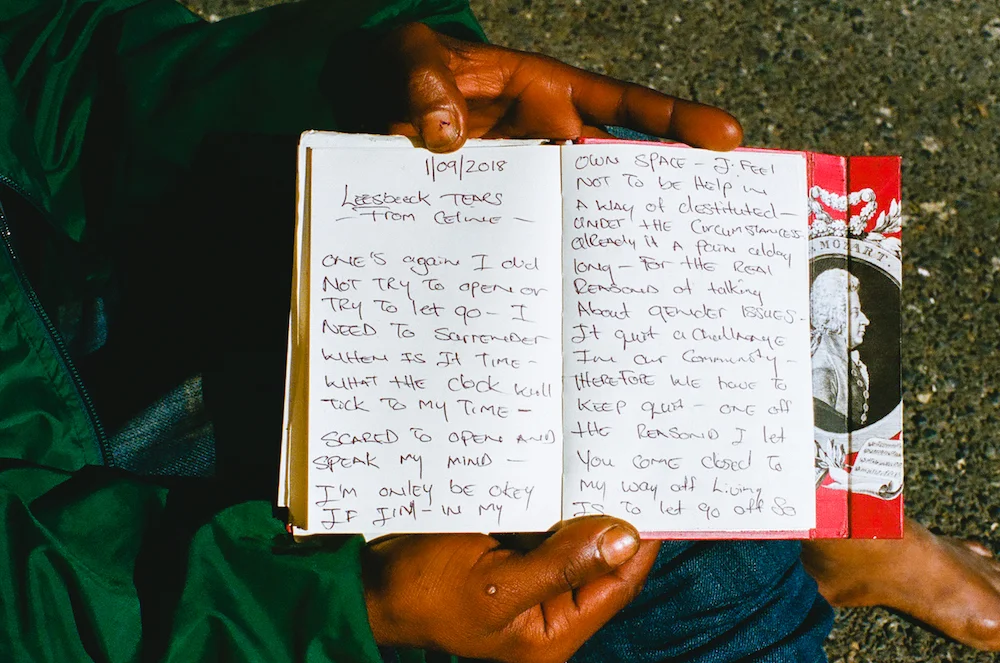 1/09/2018
LEESbeeck TEARS
- From Celine -
ONE'S again I did
NOT TRY TO open or
TRY TO let go - I
NEED TO Surrender
WHEN IS It TIME -
WHAT THE clock will
TICK TO MY TIME -
SCARED TO OPEN AND
SPEAK MY MIND -
I'M ONLEY BE OKEY
IF I'M - IN MY
OWN SPACE - I. FEEl
NOT TO be HElp in
A WAY OF destituted -
UNDER THE CIRCUMSTANCESS
alREADY It A PAIN allday
long - FOR THE REAL
REASOND of talking
About gENDER ISSUES -
It quit a Challange
In our Community -
tHEREFORE WE HAVE TO
KEEP quit - ONE OFF
tHE REASOND I let
YOU COME closed to
MY way off Living
IS To let go off So
MOZART